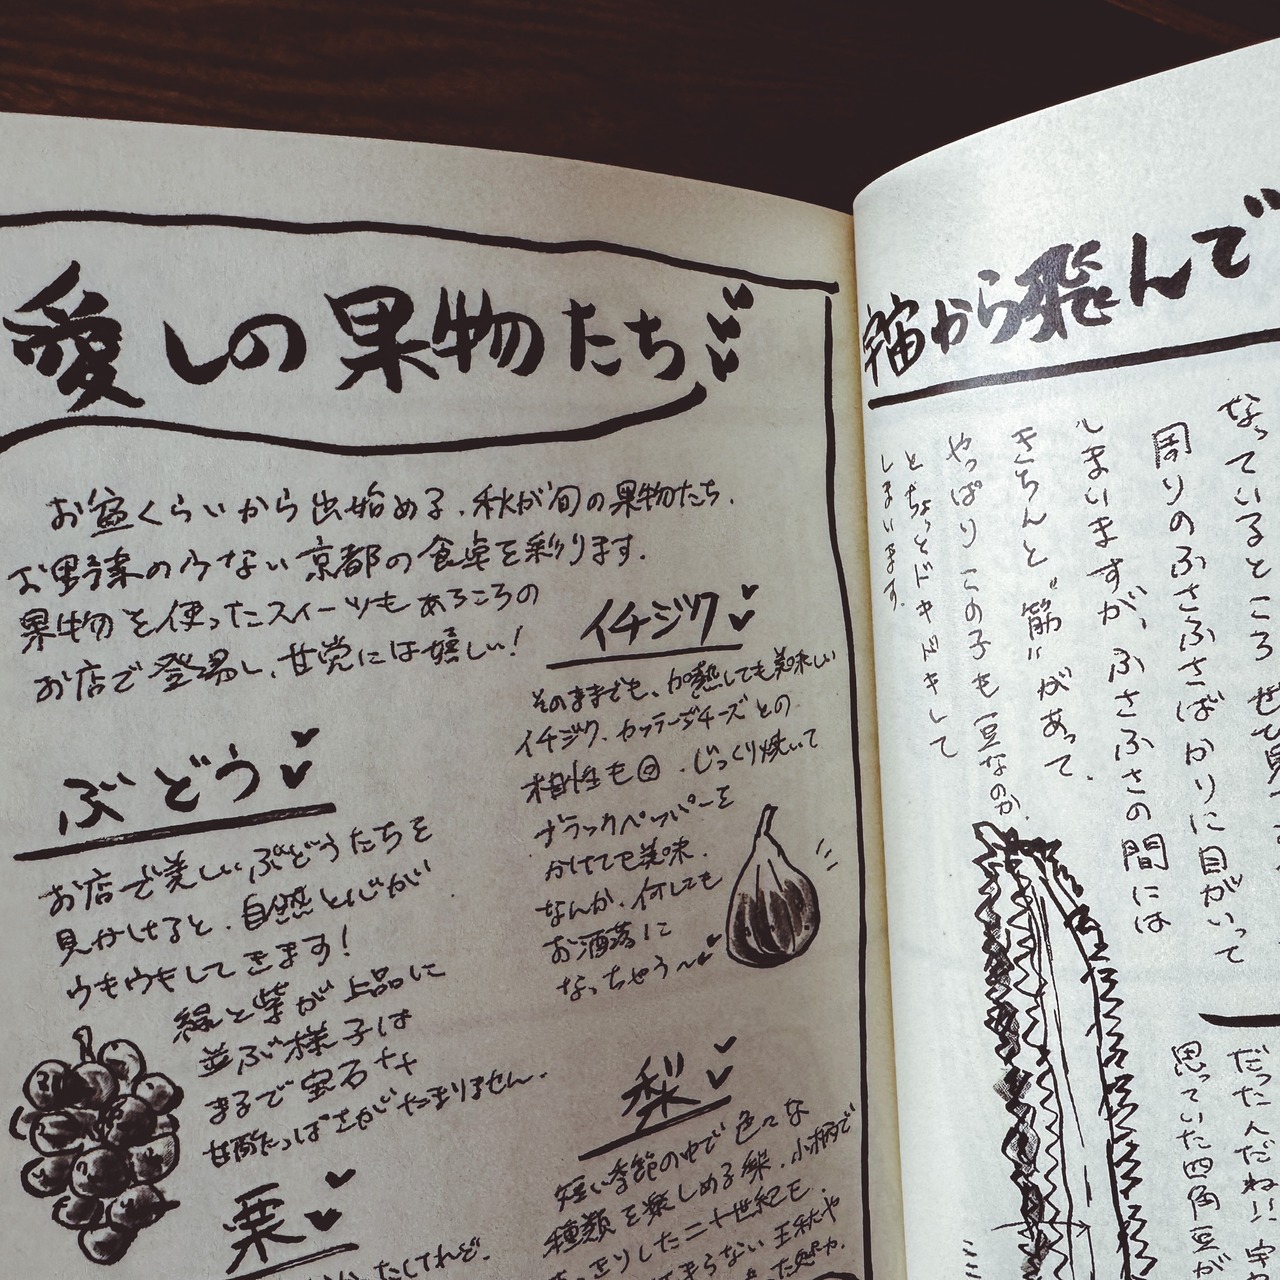 愛しの果物たち
お盆くらいから出始める、秋が旬の果物たち。
お野菜の少ない京都の食卓を彩ります。
果物を使ったスイーツもあちこちの
お店で登場し、甘党には嬉しい!
ぶどう
お店で美しいぶどうたちを
見かけると、自然と心が
ウキウキしてきます!
緑と紫が上品に
並ぶ様子は
まるで宝石ナナ
甘酸っぱさがたまりません。
栗
イチジク
そのままでも、加熱しても美味しい
イチジク。カッテージチーズとの
相性も◎。じっくり焼いて
ブラックペッパーを
かけても美味。
なんか、何しても
お洒落に
なっちゃう〜
梨
短い季節の中で色々な
種類を楽しめる梨。小柄で
した二十世紀を、
きらない王秋や
宇宙から飛んで
なっているところ
周りのふさふさばかりに目がいって
しまいますが、ふさふさの間には
きちんと"筋"があって、
やっぱりこの子も豆なのか
とちょっとドキドキして
しまいます。
だったんだね!!
思っていた四角豆が